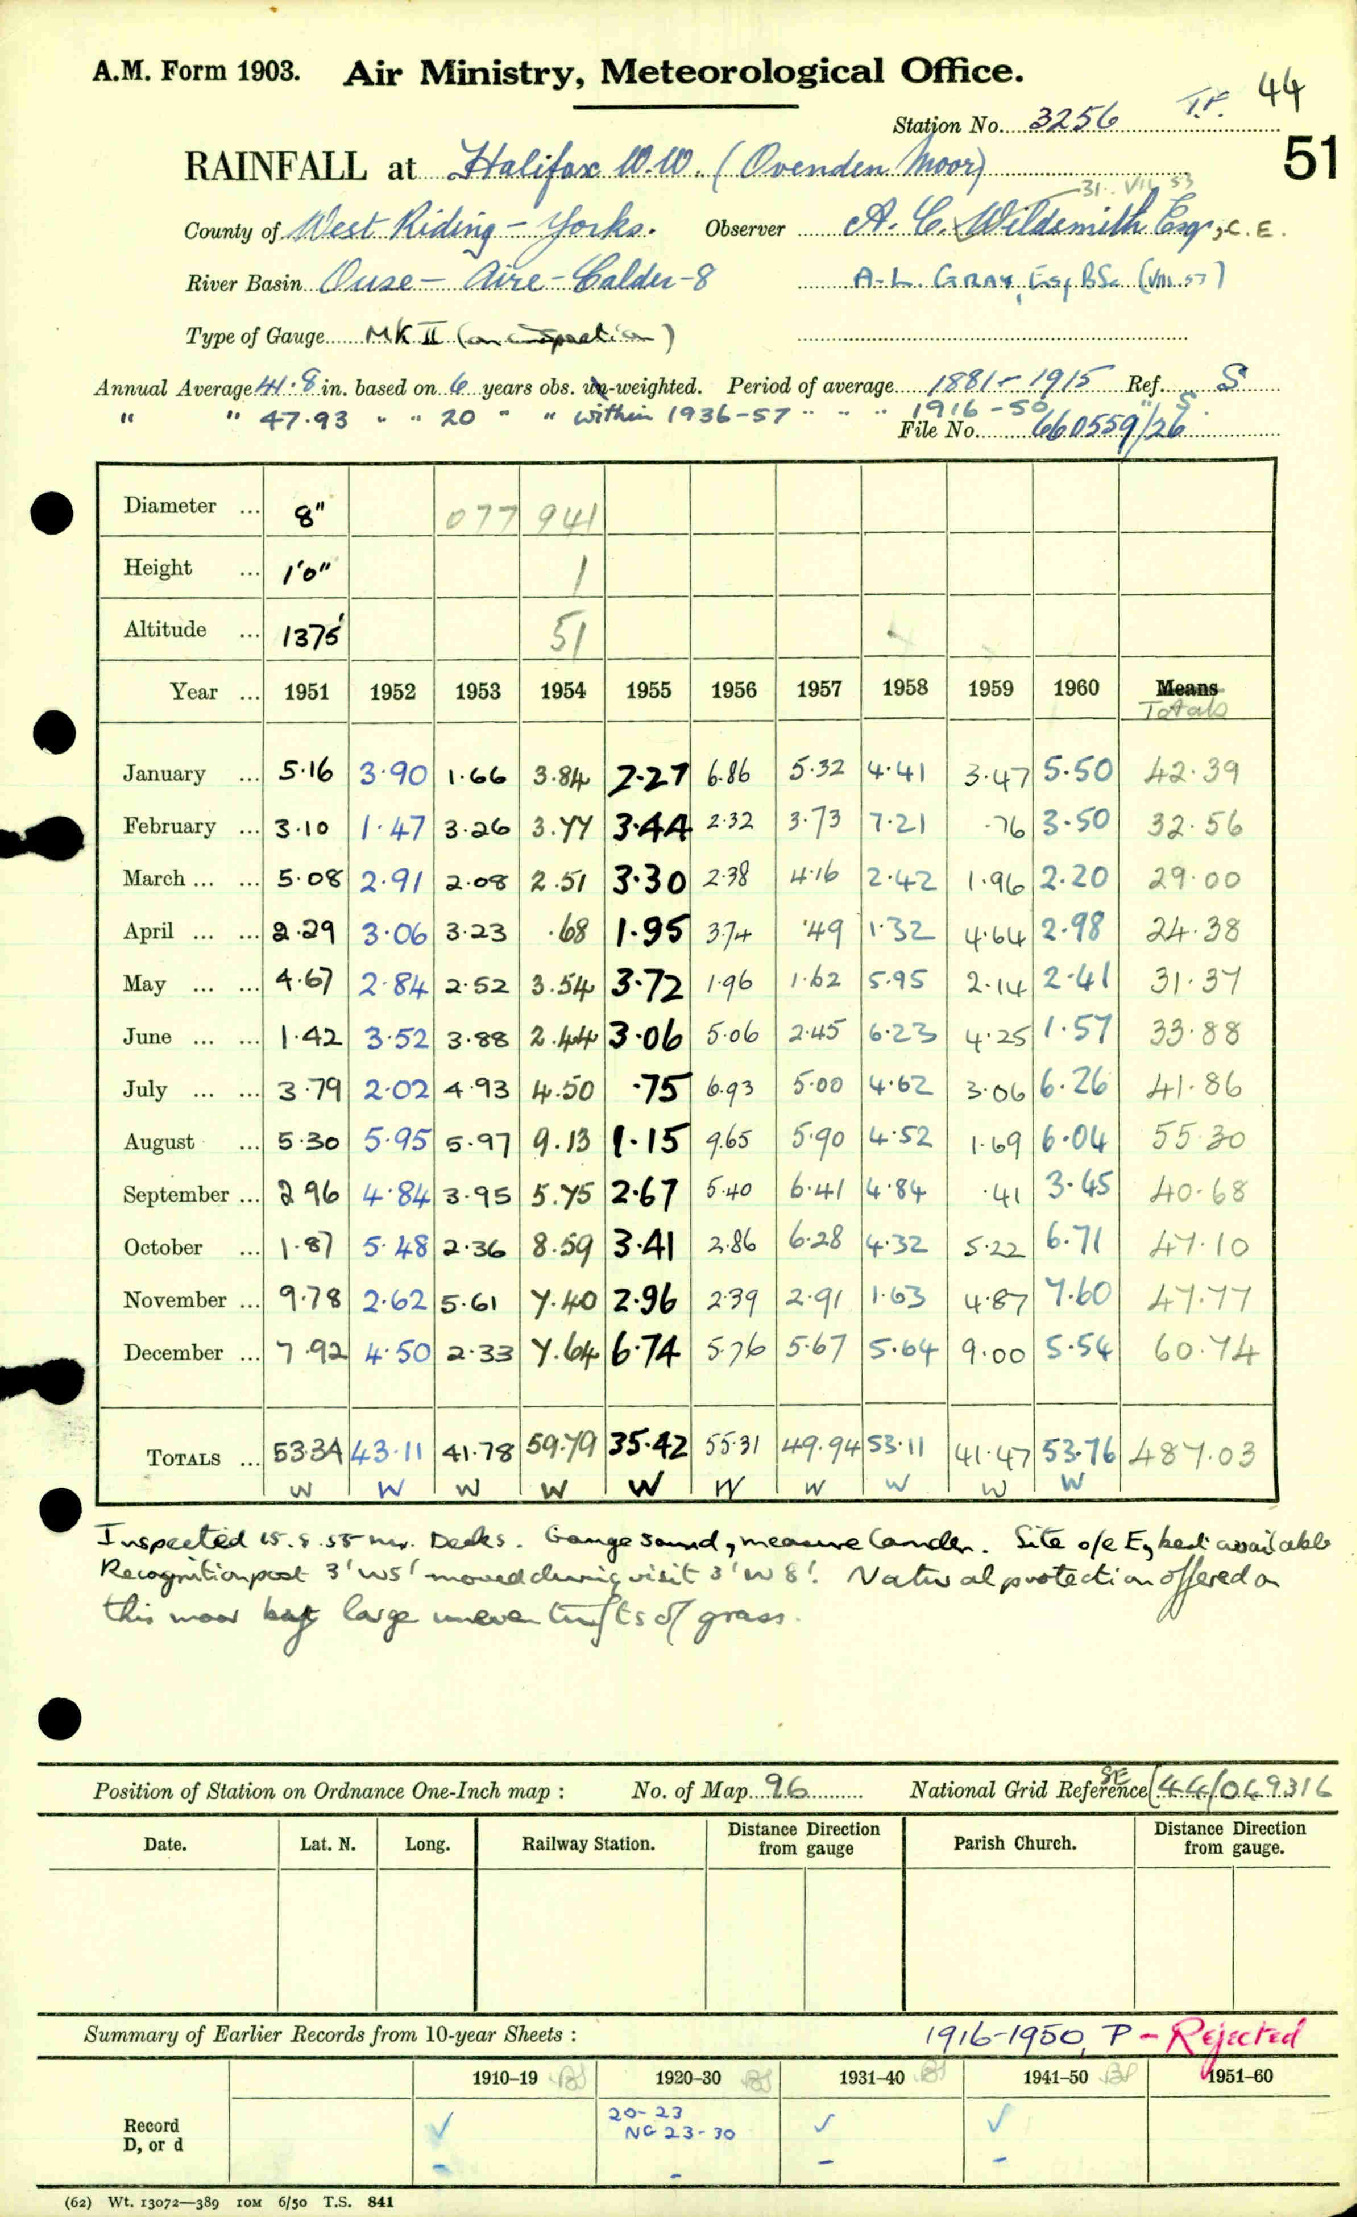 A.M. Form 1903. Air Ministry, Meteorological Office.
44
Station No. 3256 T.P.
51
RAINFALL at Halifax W.W. (Ovenden Moor)
31. VII 53
County of West Riding - Yorks. Observer A. C. Wildsmith Esqr, C.E.
River Basin Ouse - Aire - Calder - 8 A. L. GRAY, Esq BSc (VIII.53)
Type of Gauge MK II (on inspection)
Annual Average 41.8 in. based on 6 years obs. un-weighted. Period of average 1881-1915 Ref. S
" " 47.93 " " 20 " " within 1936-57 " " " 1916-50 " S.
File No. 660559/26
Diameter ... 8" 077 941
Height ... 1'0" 1
Altitude ... 1375' 51
Year ... 1951 1952 1953 1954 1955 1956 1957 1958 1959 1960 Means
Totals
January ... 5.16 3.90 1.66 3.84 2.27 6.86 5.32 4.41 3.47 5.50 42.39
February ... 3.10 1.47 3.26 3.77 3.44 2.32 3.73 7.21 .76 3.50 32.56
March ... ... 5.08 2.91 2.08 2.51 3.30 2.38 4.16 2.42 1.96 2.20 29.00
April ... ... 2.29 3.06 3.23 .68 1.95 3.74 .49 1.32 4.64 2.98 24.38
May ... ... 4.67 2.84 2.52 3.54 3.72 1.96 1.62 5.95 2.14 2.41 31.37
June ... ... 1.42 3.52 3.88 2.44 3.06 5.06 2.45 6.23 4.25 1.57 33.88
July ... ... 3.79 2.02 4.93 4.50 .75 6.93 5.00 4.62 3.06 6.26 41.86
August ... 5.30 5.95 5.97 9.13 1.15 9.65 5.90 4.52 1.69 6.04 55.30
September ... 2.96 4.84 3.95 5.75 2.67 5.40 6.41 4.84 .41 3.45 40.68
October ... 1.87 5.48 2.36 8.59 3.41 2.86 6.28 4.32 5.22 6.71 47.10
November ... 9.78 2.62 5.61 7.40 2.96 2.39 2.91 1.63 4.87 7.60 47.77
December ... 7.92 4.50 2.33 7.64 6.74 5.76 5.67 5.64 9.00 5.54 60.74
TOTALS ... 53.34 43.11 41.78 59.79 35.42 55.31 49.94 53.11 41.47 53.76 487.03
W W W W W W W W W W
Inspected 15.8.55 Mr. Deeks. Gauge sound, measure Camden. Site o/e E, best available
Recognition post 3' W5' moved during visit 3' W 8'. Natural protection offered on
this moor by large uneven tufts of grass.
Position of Station on Ordnance One-Inch map : No. of Map 96 National Grid Reference SE (44/049316
Date. Lat. N. Long. Railway Station. Distance from Direction gauge Parish Church. Distance from Direction gauge.
Summary of Earlier Records from 10-year Sheets : 1916-1950, P - Rejected
1910–19 1920–30 1931–40 1941–50 1951–60
Record D, or d ✓ 20-23 ✓ ✓
NG 23-30
- - - -
(62) Wt. 13072—389 10M 6/50 T.S. 841